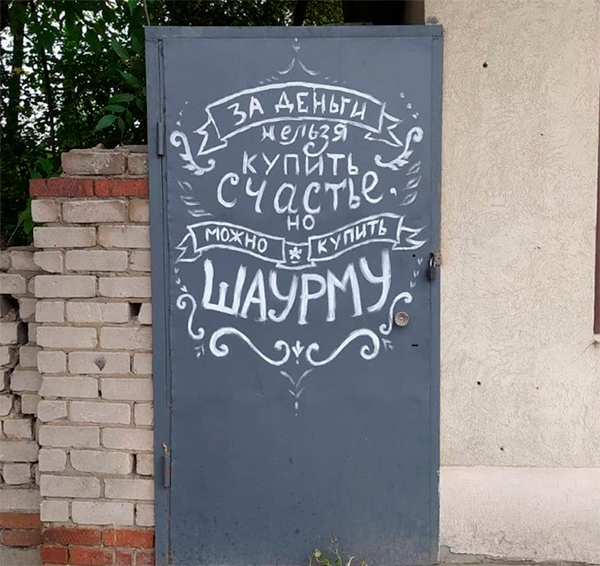 ЗА ДЕНЬГИ
нельзя
КУПИТЬ
счастье,
НО
МОЖНО * КУПИТЬ
ШАУРМУ